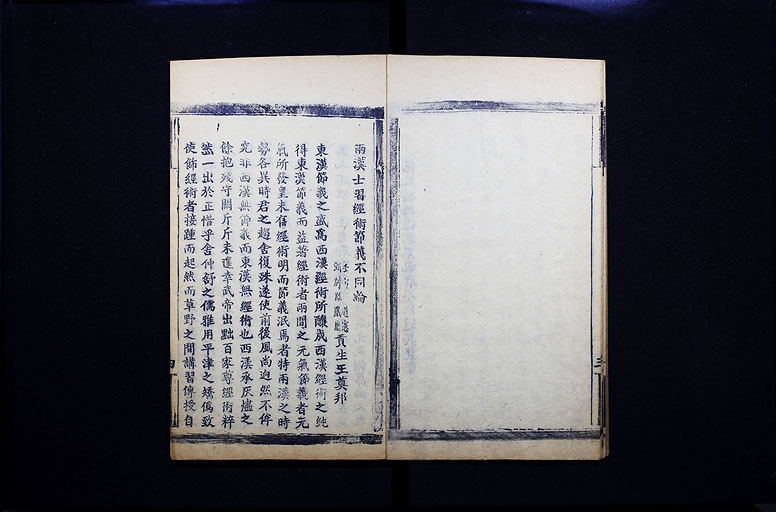 兩漢士習經術節義不同論
貢生王蕡邦
東漢節義之盛爲西漢經術所釀成西漢經術之純
得東漢節義而益著經術者兩間之元氣節義者元
氣所發皇未有經術明而節義泯焉者特兩漢之時
勢各異時君之趨舍復殊遂使前後風尚迥然不侔
究非西漢無節義而東漢無經術也西漢承灰燼之
餘抱殘守闕斤斤未遑幸武帝出黜百家尊經術粹
然一出於正惜乎舍仲舒之儒雅用平津之矯僞致
使飾經術者接踵而起然而草野之間講習傳授自